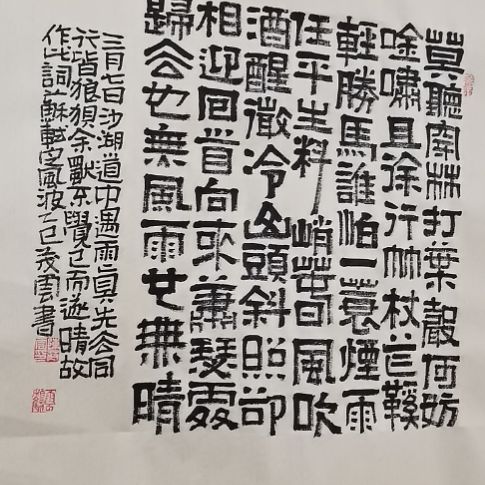 莫聽穿林打葉聲何妨
吟嘯且徐行竹杖芒鞵
輕勝馬誰怕一蓑煙雨
任平生料峭春風吹
酒醒微冷山頭斜照卻
相迎回首向來蕭瑟處
歸去也無風雨也無晴
三月七日沙湖道中遇雨具先去同
行皆狼狽余獨不覺已而遂晴故
作此詞蘇軾定風波乙巳雲書